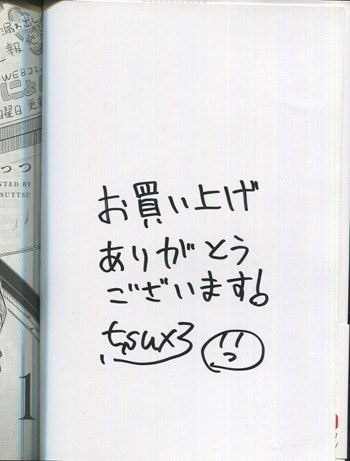 WEBコミ
曜日 更
つつ
NTED BY
SUTTSU
1
お買い上げ
ありがとう
ございます!
tsux3